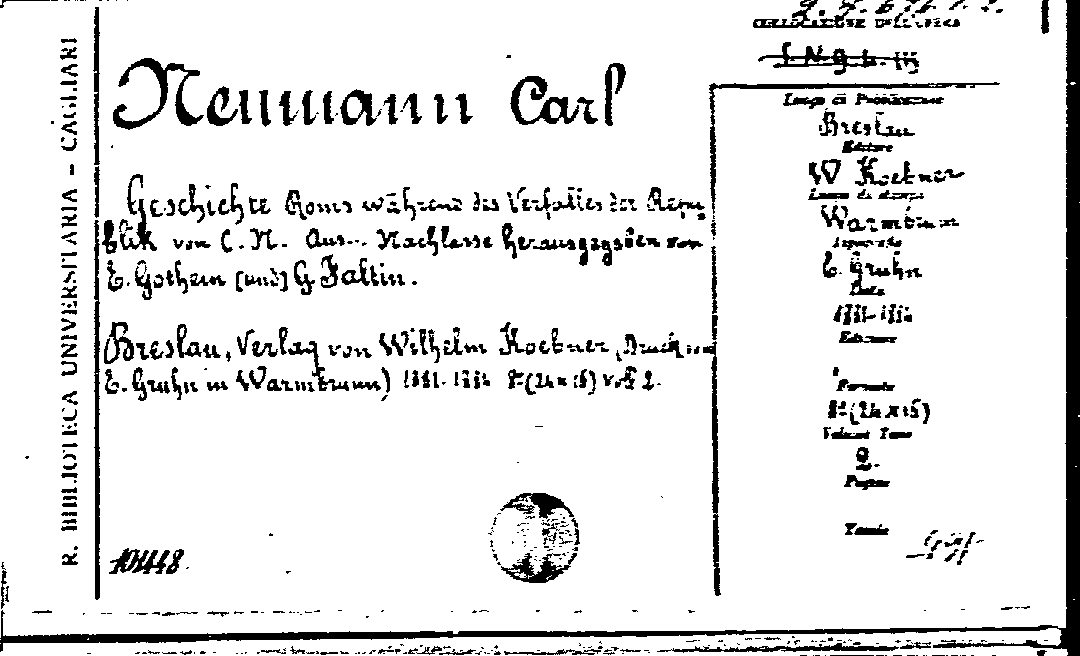 R. BIBLIOTECA UNIVERSITARIA - CAGLIARI
Neumann Carl
Geschichte Roms während des Verfalles der Repu=
blik von C. N. Aus... Nachlasse herausgegeben von
E. Gothein [und] G. Faltin.
Breslau, Verlag von Wilhelm Koebner (Druck von
E. Gruhn in Warmbrunn) 1881-1884 8º (24 x 15) voll. 2.
101448
COLLOCAZIONE DELL'OPERA
Luogo di Pubblicazione
Breslau
Editore
W Koebner
Luogo di stampa
Warmbrunn
Tipografo
E. Gruhn
Data
1881-1884
Edizione
Formato
8º (24 x 15)
Volumi Tomi
2.
Pagine
Tavole